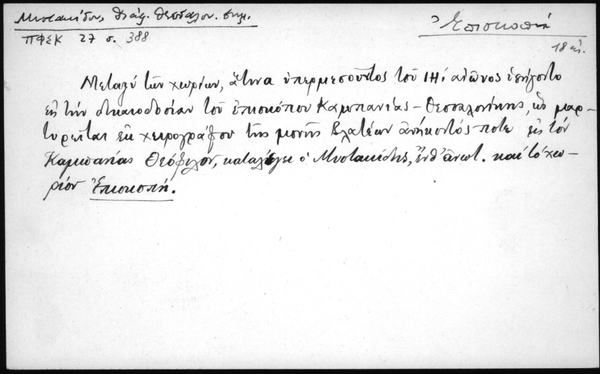 Μυστακίδου διάφ. Θεσσαλον. σημ.
ΠΦΣΚ 27 σ. 388
Ἐπισκοπή
18 αἰ.
Μεταξὺ τῶν χωρίων, ἅτινα ὑπερμεσοῦντος τοῦ ΙΗ' αἰῶνος ὑπήγοντο
εἰς τὴν δικαιοδοσίαν τοῦ ἐπισκόπου Καμπανίας - Θεσσαλονίκης, ὡς μαρ-
τυρεῖται ἐκ χειρογράφου τῆς μονῆς Βλατέων ἀνήκοντός ποτε εἰς τὸν
Καμπανίας Θεόφιλον, καταλέγει ὁ Μυστακίδης, ἔνθ' ἀνωτ. καὶ τὸ χω-
ρίον Ἐπισκοπή.